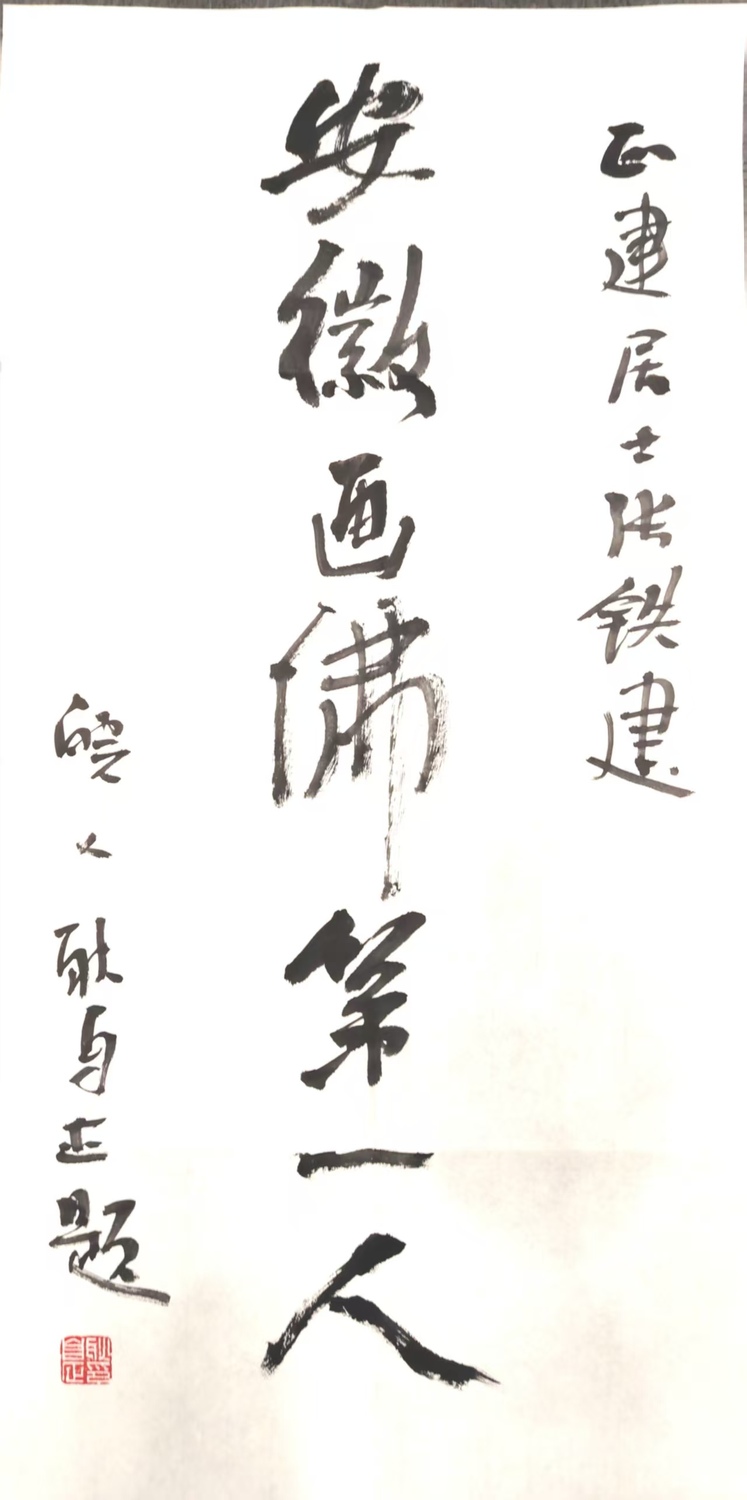 正建居士张铁建
安徽画佛第一人
皖人耿身志题